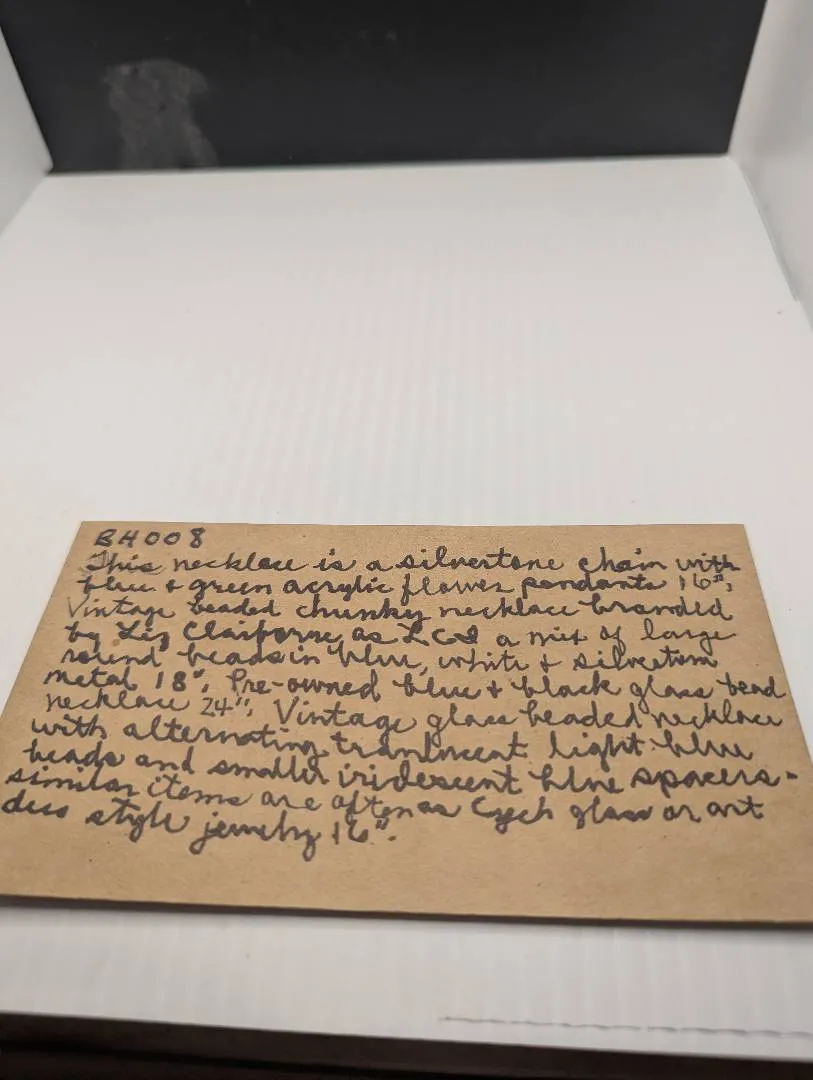 BH008
This necklace is a silvertone chain with
blue + green acrylic flower pendants 16",
Vintage beaded chunky necklace branded
by Liz Claiborne as LCI a mix of large
round beads in blue, white + silvertone
metal 18", Pre-owned blue + black glass bead
necklace 24", Vintage glass beaded necklace
with alternating translucent light blue
beads and smaller iridescent blue spacers-
similar items are often as Czech glass or art
deco style jewelry 16".